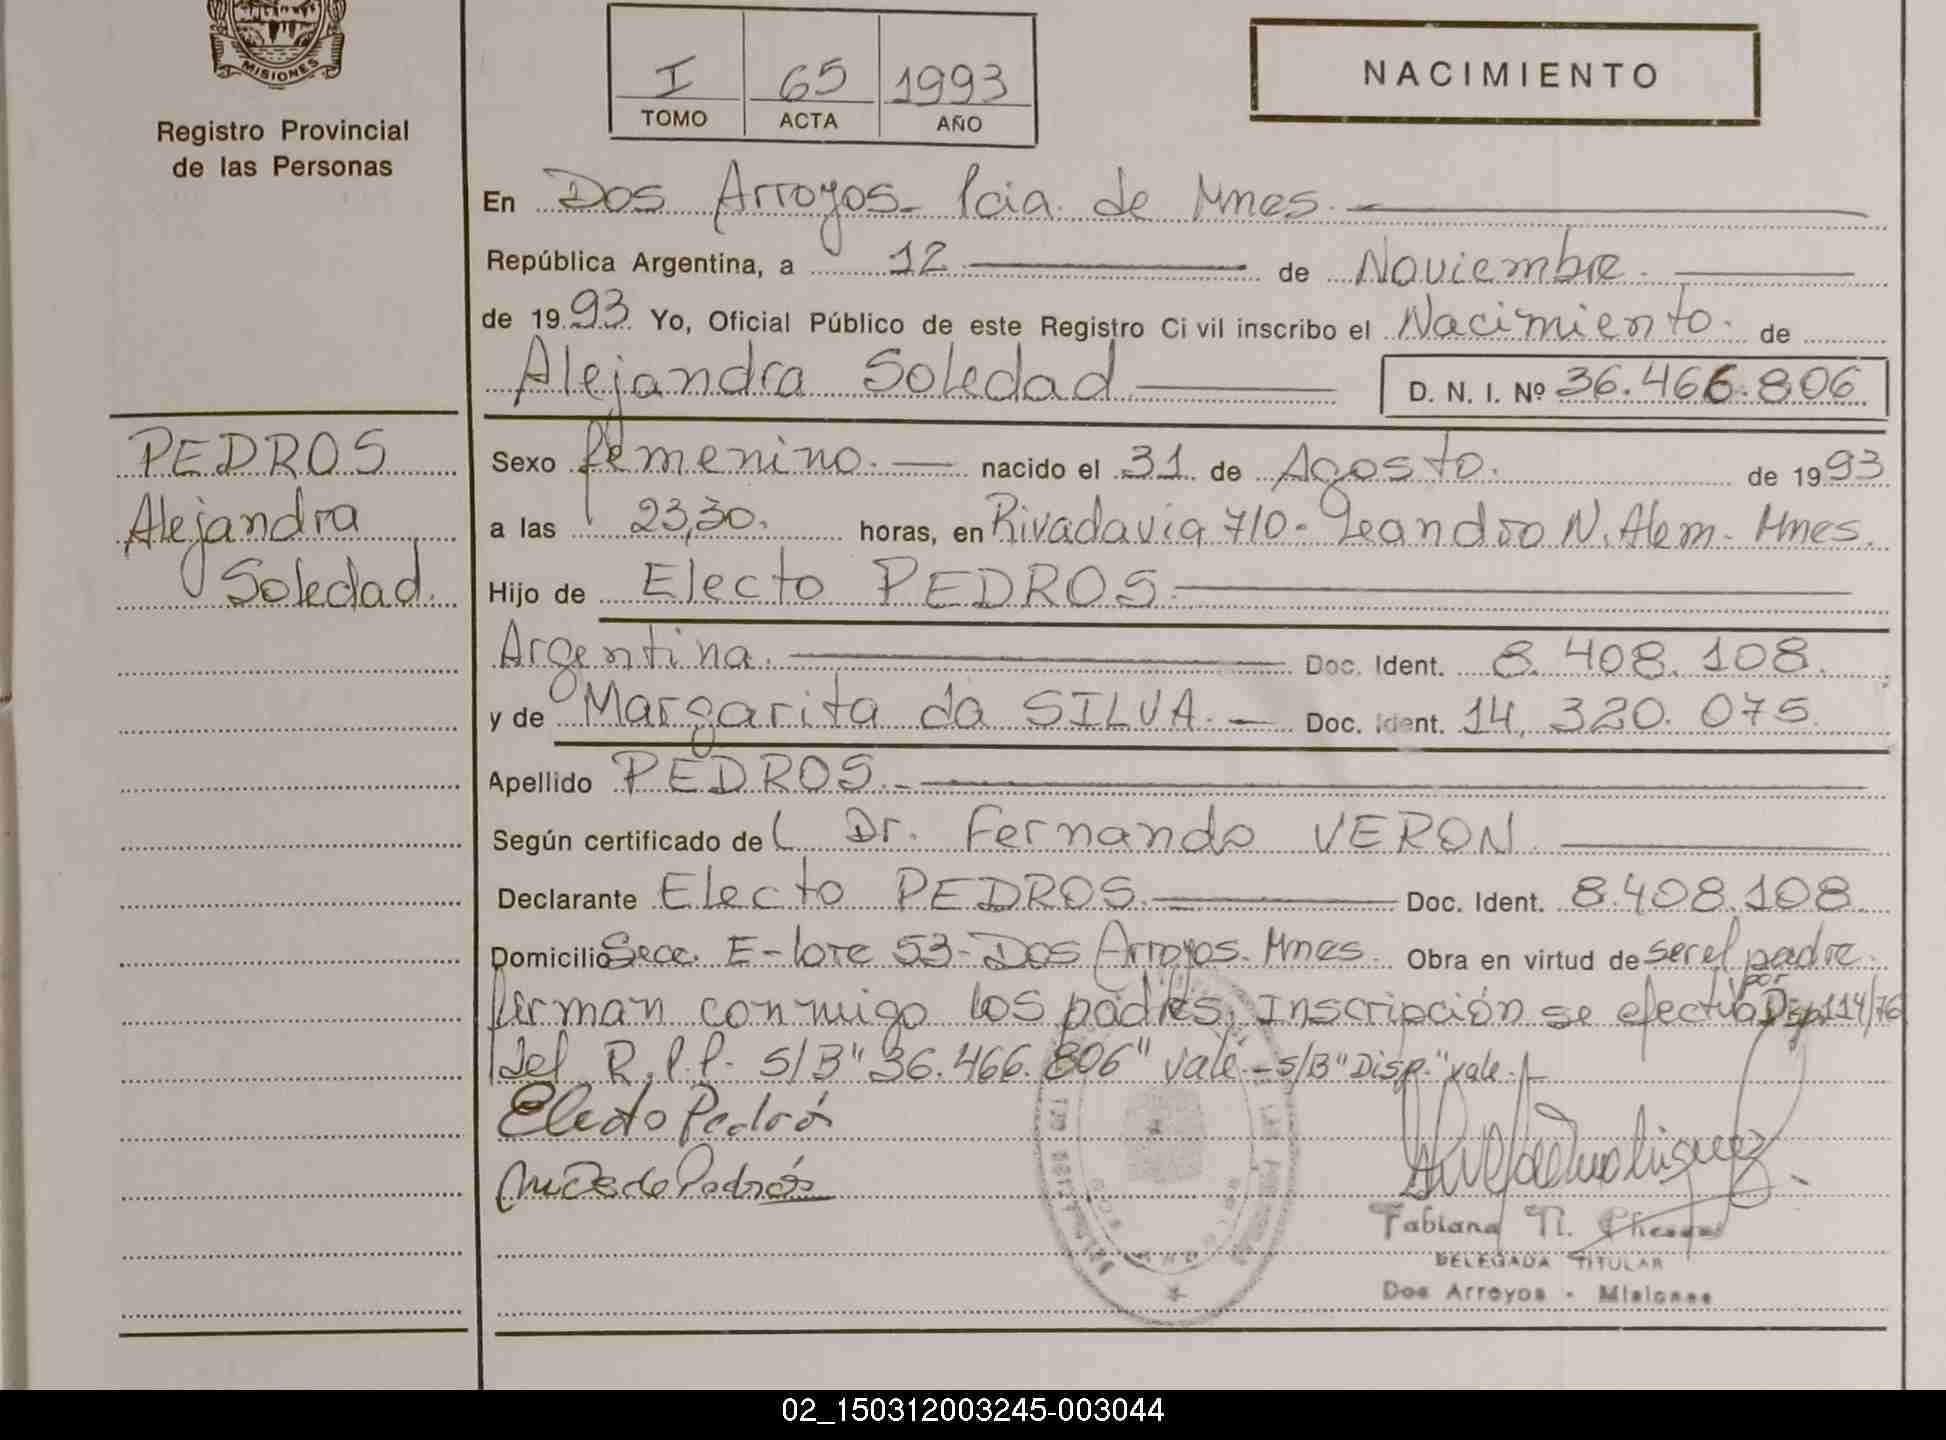 MISIONES
Registro Provincial
de las Personas
I 65 1993
TOMO ACTA AÑO
NACIMIENTO
En Dos Arroyos - Pcia. de Mnes.
República Argentina, a 12 de Noviembre.
de 1993. Yo, Oficial Público de este Registro Civil inscribo el Nacimiento. de
Alejandra Soledad D. N. I. Nº 36.466.806
PEDROS
Alejandra
Soledad.
Sexo femenino. nacido el 31 de Agosto. de 1993
a las 23,30. horas, en Rivadavia 710 - Leandro N. Alem - Mnes.
Hijo de Electo PEDROS
Argentina. Doc. Ident. 8.408.108.
y de Margarita da SILVA. Doc. Ident. 14.320.075.
Apellido PEDROS.
Según certificado del Dr. Fernando VERON
Declarante Electo PEDROS Doc. Ident. 8.408.108.
Domicilio Secc. E - lote 53 - Dos Arroyos - Mnes. Obra en virtud de ser el padre.
firman conmigo los padres, Inscripción se efectúa por Disp. 114/76
del R.P.P. S/B "36.466.806" vale - S/B "Disp." vale.
Electo Pedrós
de Pedrós
Fabiana
DELEGADA TITULAR
Dos Arroyos - Misiones
02_150312003245-003044